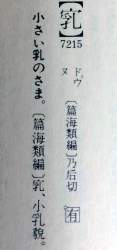 【】
7215
ドウ
ヌ
〔篇海類編〕乃后切
有
小さい乳のさま。〔篇海類編〕、小乳貌。